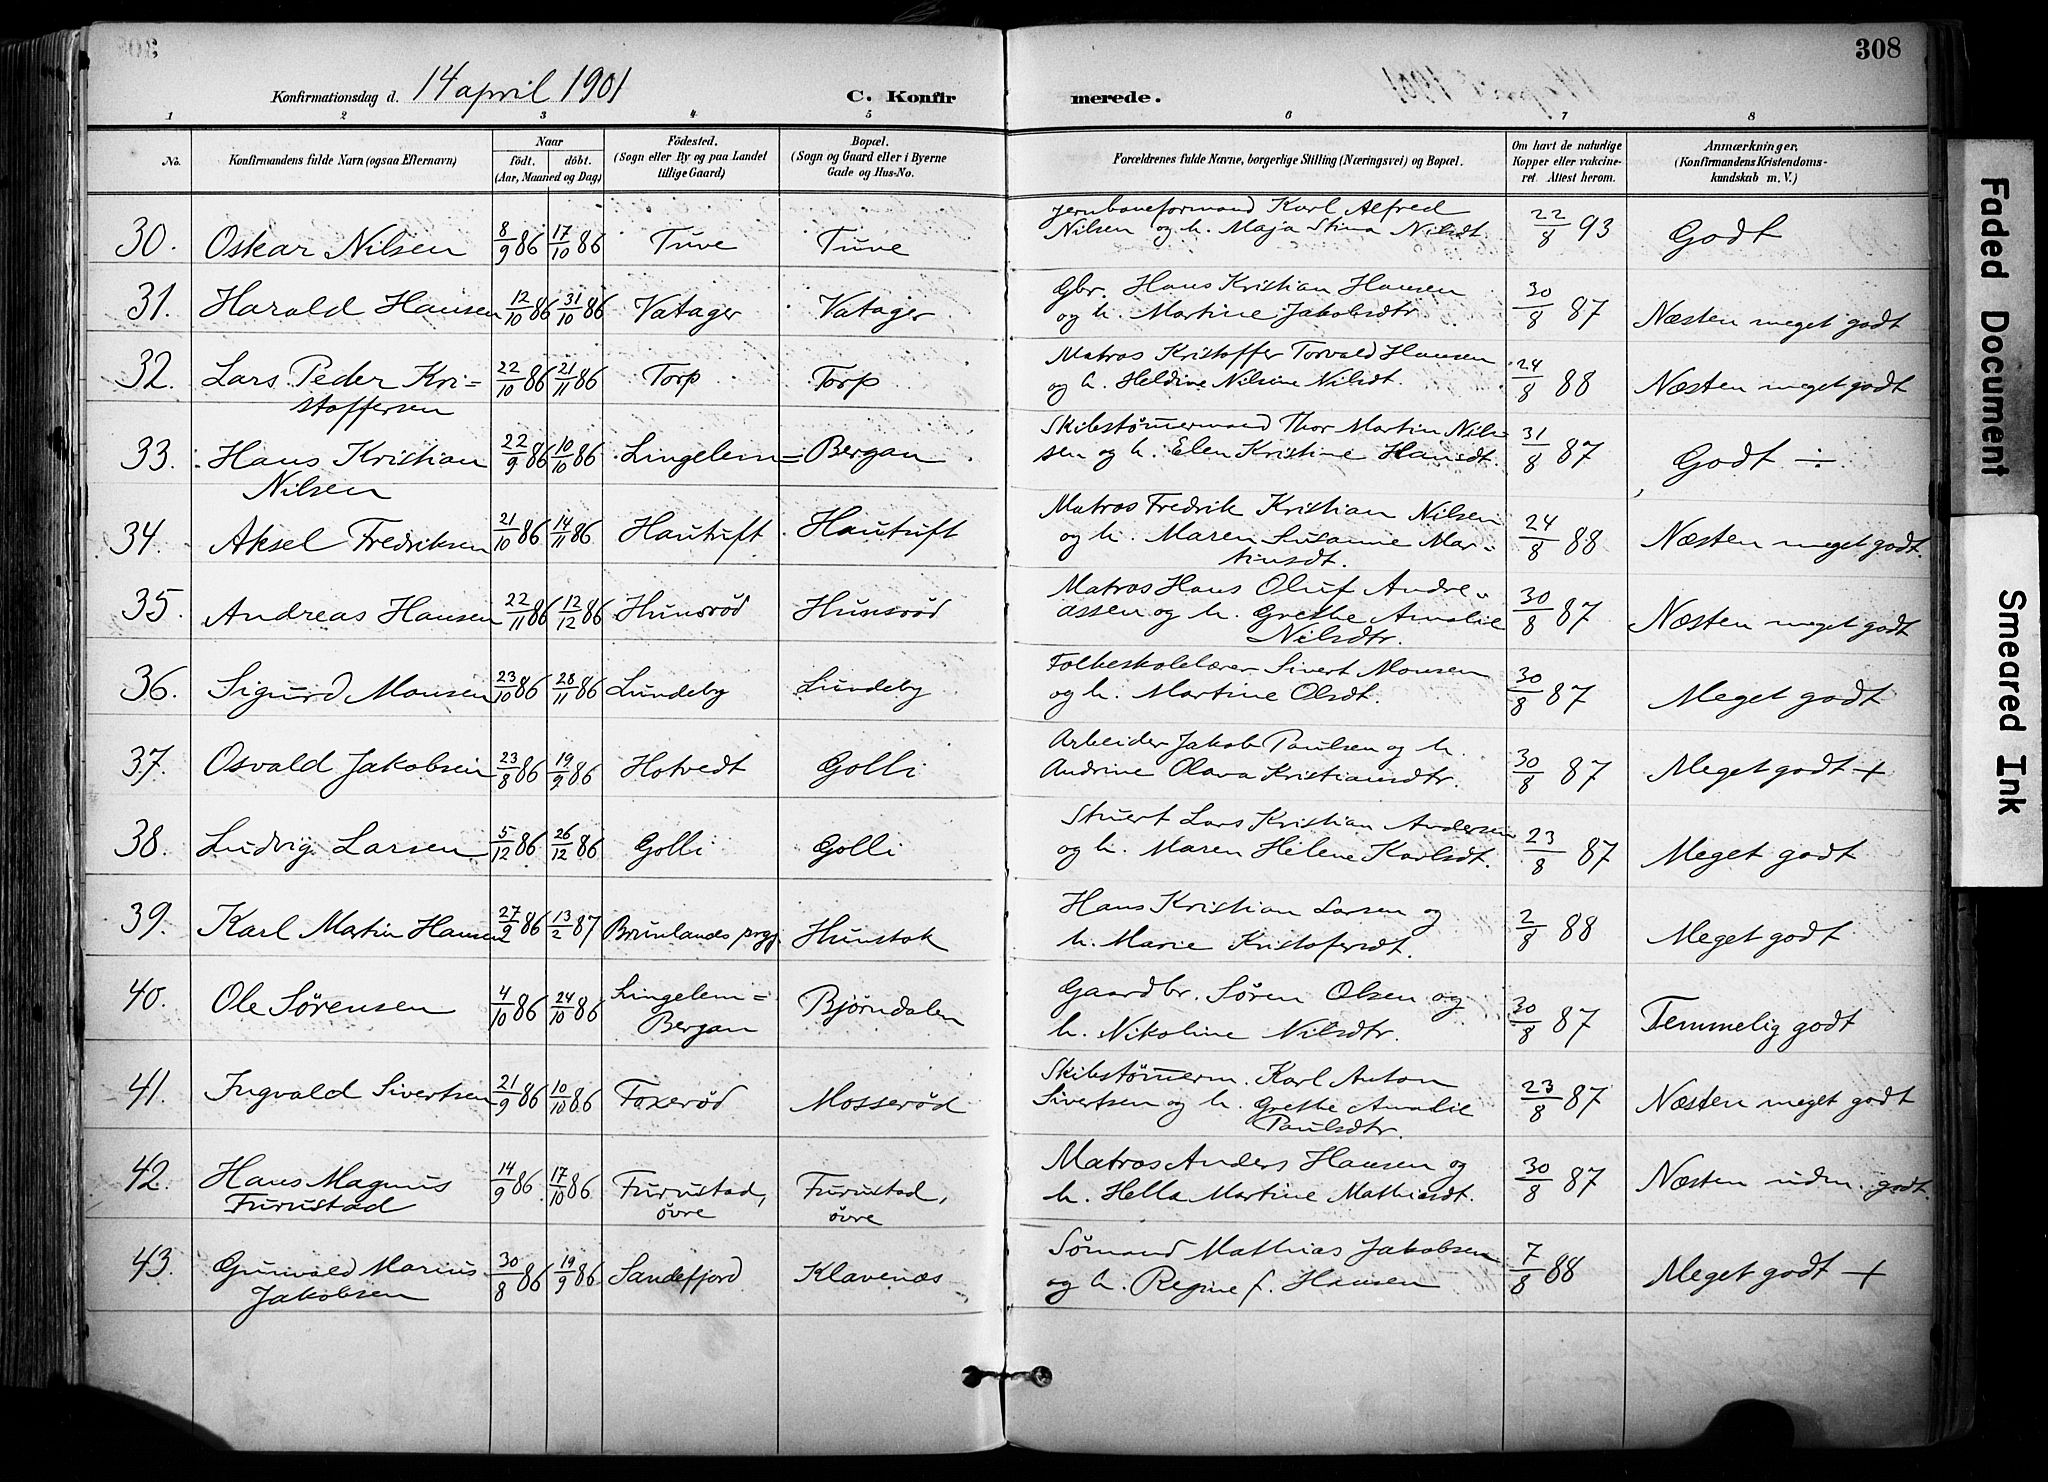 308
Konfirmationsdag d. 14 april 1901
C. Konfirmerede.
1 2 3 4 5 6 7 8
No.
Konfirmandens fulde Navn (ogsaa Efternavn)
Naar
födt. döbt.
(Aar, Maaned og Dag)
Födested.
(Sogn eller By og paa Landet
tillige Gaard)
Bopæl.
(Sogn og Gaard eller i Byerne
Gade og Hus-No.
Forældrenes fulde Navne, borgerlige Stilling (Næringsvei) og Bopæl.
Om havt de naturlige
Kopper eller vakcine-
ret. Attest herom.
Anmærkninger,
(Konfirmandens Kristendoms-
kundskab m. V.)
30. Oskar Nilsen 8/9 86 17/10 86 Tuve Tuve
Jernbaneformand Karl Alfred
Nilsen og h. Maja Stina Nilsdt. 22/8 93 Godt
31. Harald Hansen 12/10 86 31/10 86 Vatager Vatager
Gbr. Hans Kristian Hansen
og h. Martine Jakobsdtr. 30/8 87 Næsten meget godt
32. Lars Peder Kri-
stoffersen 22/10 86 21/11 86 Torp Torp
Matros Kristoffer Torvald Hansen
og h. Heldine Nilsine Nilsdt. 24/8 88 Næsten meget godt
33. Hans Kristian
Nilsen 22/9 86 10/10 86 Lingelem= Bergan
Skibstømmermand Thor Martin Nil-
sen og h. Elen Kristine Hansdt. 31/8 87 Godt ÷
34. Aksel Fredriksen 21/10 86 14/11 86 Hautuft Hautuft
Matros Fredrik Kristian Nilsen
og h. Maren Susanne Mar-
tinsdt. 24/8 88 Næsten meget godt.
35. Andreas Hansen 22/11 86 12/12 86 Hunsrød Hunsrød
Matros Hans Oluf Andre-
assen og h. Grethe Amalie
Nilsdtr. 30/8 87 Næsten meget godt
36. Sigurd Monsen 23/10 86 28/11 86 Lundeby Lundeby
Folkeskolelærer Sivert Monsen
og h. Martine Olsdt. 30/8 87 Meget godt
37. Osvald Jakobsen 23/8 86 19/9 86 Hotvedt Golli
Arbeider Jakob Paulsen og h.
Andrine Olava Kristiansdtr. 30/8 87 Meget godt +
38. Ludvig Larsen 5/12 86 26/12 86 Golli Golli
Stuert Lars Kristian Andersen
og h. Maren Helene Karlsdt. 23/8 87 Meget godt
39. Karl Martin Hansen 27/9 86 13/2 87 Brunlands prgj. Hunstok
Hans Kristian Larsen og
h. Marie Kristofersdt. 2/8 88 Meget godt
40. Ole Sørensen 4/10 86 24/10 86 Lingelem=
Bergan Bjørndalen
Gaardbr. Søren Olsen og
h. Nikoline Nilsdtr. 30/8 87 Temmelig godt
41. Ingvald Sivertsen 21/9 86 10/10 86 Foxerød Mosserød
Skibstømmerm. Karl Anton
Sivertsen og h. Grethe Amalie
Paulsdtr. 23/8 87 Næsten meget godt
42. Hans Magnus
Furustad 14/9 86 17/10 86 Furustad,
øvre Furustad,
øvre
Matros Anders Hansen og
h. Hella Martine Mathiasdt. 30/8 87 Næsten udm. godt.
43. Gunvald Marius
Jakobsen 30/8 86 19/9 86 Sandefjord Klavenæs
Sømand Mathias Jakobsen
og h. Regine f. Hansen 7/8 88 Meget godt +
Faded Document
Smeared Ink